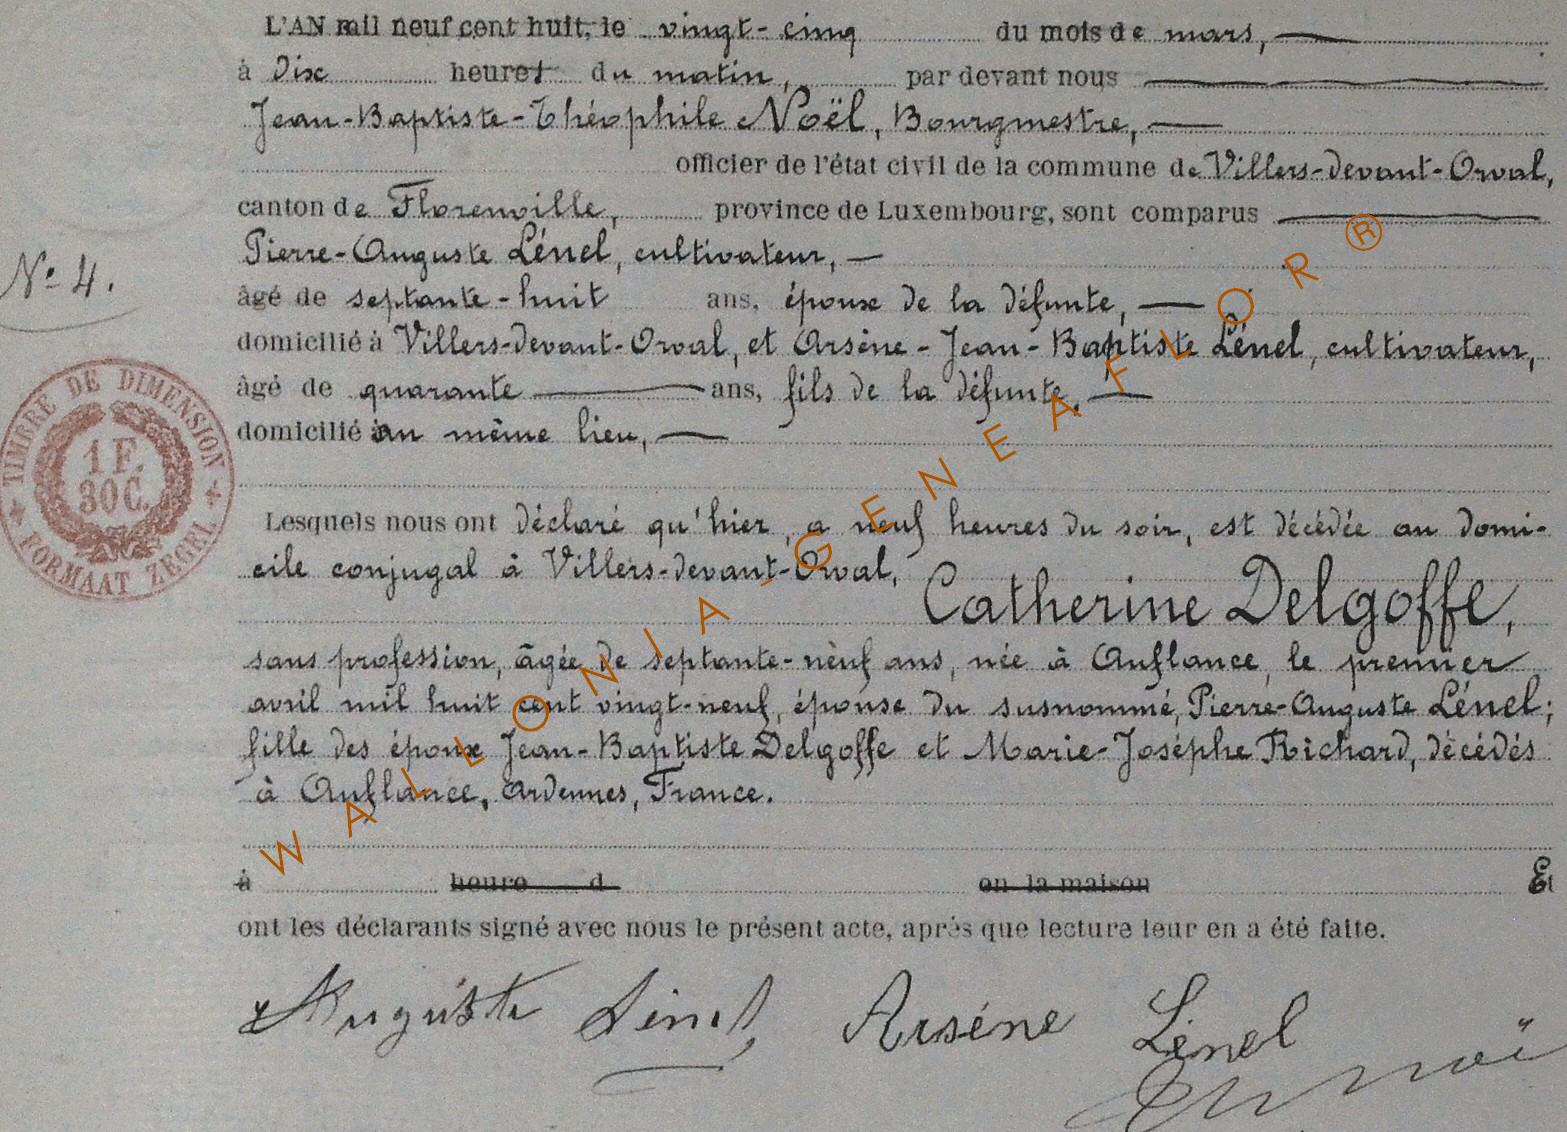 L'AN mil neuf cent huit, le vingt-cinq du mois de mars,
à dix heures du matin, par devant nous
Jean-Baptiste-Théophile Noël, Bourgmestre,
officier de l'état civil de la commune de Villers-devant-Orval,
canton de Florenville, province de Luxembourg, sont comparus
Pierre-Auguste Lénel, cultivateur,
N° 4.
âgé de septante-huit ans, époux de la défunte,
domicilié à Villers-devant-Orval, et Arsène-Jean-Baptiste Lénel, cultivateur,
âgé de quarante ans, fils de la défunte,
domicilié au même lieu,
TIMBRE DE DIMENSION
1 F.
30 C.
FORMAAT ZEGEL
Lesquels nous ont déclaré qu'hier, a neuf heures du soir, est décédée au domi-
cile conjugal à Villers-devant-Orval,
Catherine Delgoffe,
sans profession, âgée de septante-neuf ans, née à Auflance, le premier
avril mil huit cent vingt-neuf, épouse du susnommé, Pierre-Auguste Lénel;
fille des époux Jean-Baptiste Delgoffe et Marie-Josèphe Richard, décédés
à Auflance, Ardennes, France.
à heure d en la maison Et
ont les déclarants signé avec nous le présent acte, après que lecture leur en a été faite.
Auguste Lénel, Arséne Lénel
Noël
WALLONIA-GENEAFLOR®